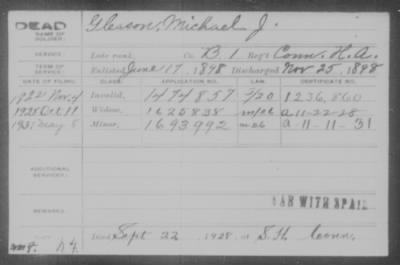 DEAD Gleason, Michael J.
NAME OF SOLDIER:
SERVICE: Late rank, Co. B. 1 Reg't Conn. H. A.
TERM OF SERVICE: Enlisted June 17, 1898 Discharged Nov 25, 1898
DATE OF FILING: CLASS. APPLICATION NO. LAW. CERTIFICATE NO.
Nov. 4 Invalid, 1474857 1236,860
1928 Oct 11 Widow, 1625838 m/26 a 11-22-28
1931 May 8 Minor, 1693992 m 26 a-11-11-31
ADDITIONAL SERVICES:
WAR WITH SPAIN
REMARKS:
Died Sept 22, 1928, at Conn.